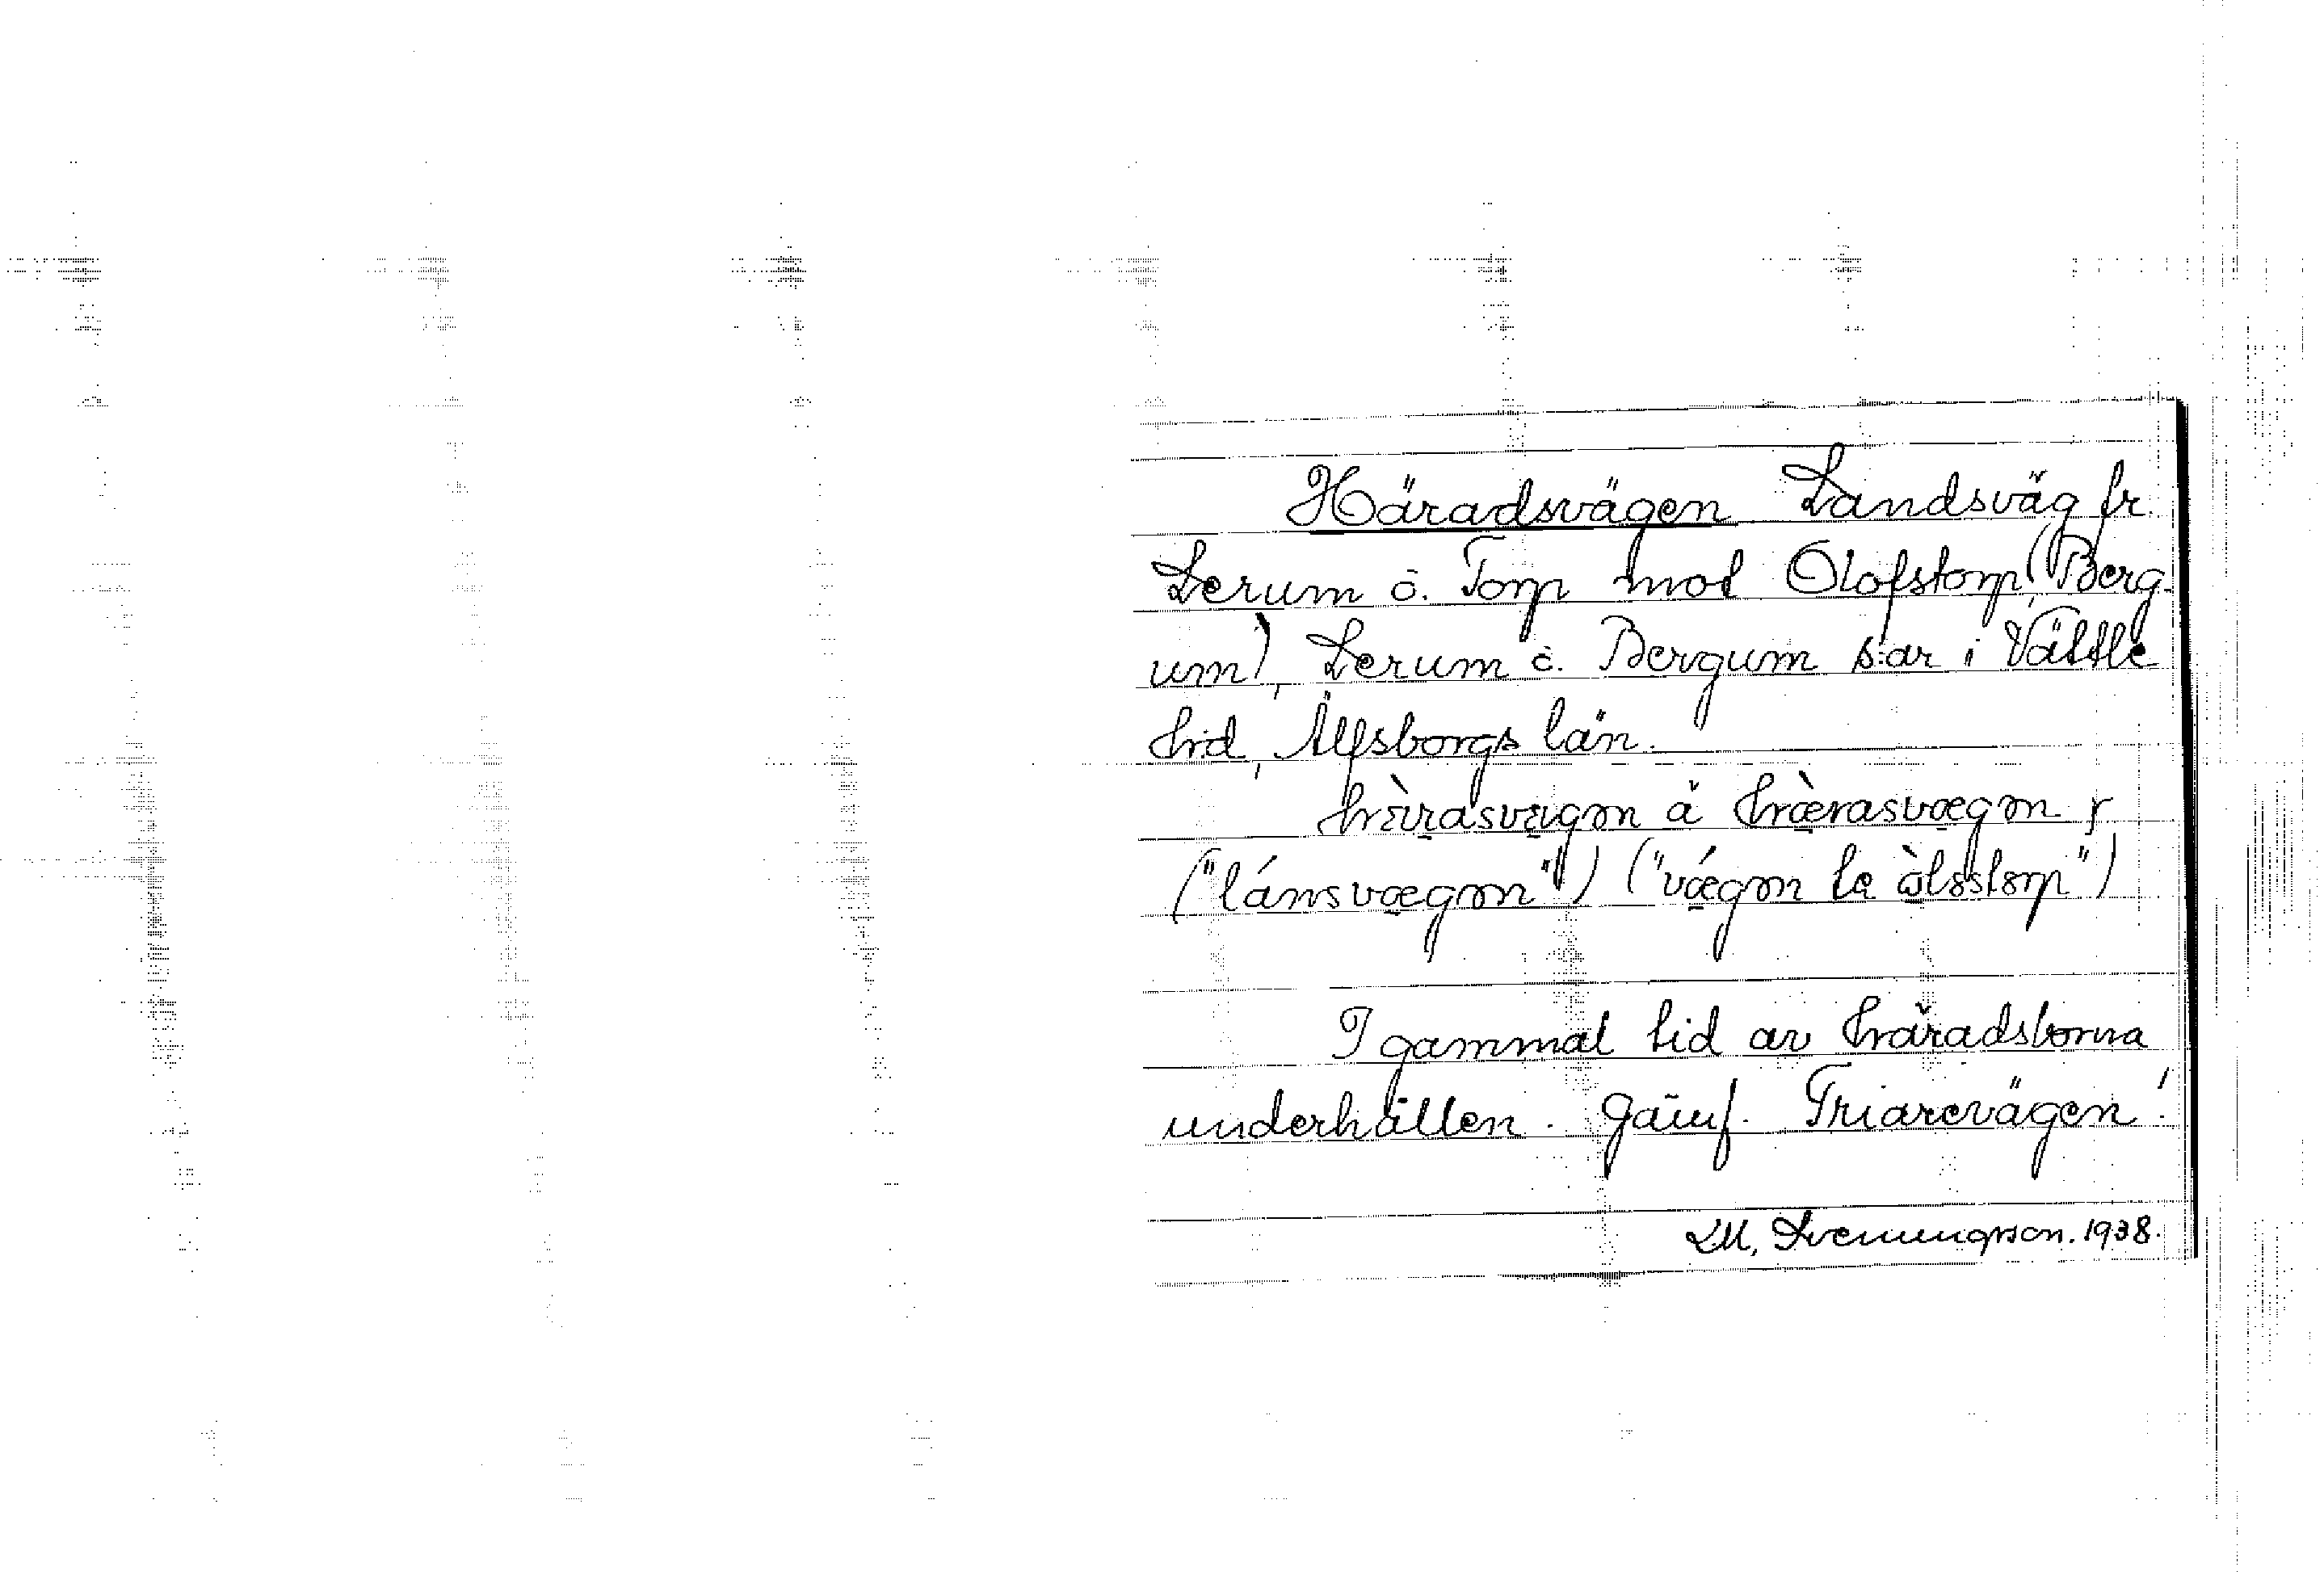 Häradsvägen Landsväg fr.
Lerum ö. Torp mot Olofstorp (Berg-
um), Lerum o. Bergum s:ar i Vättle
hd, Älfsborgs län.
hæ̀rasvægən å hæ̀rasvægən f
("lánsvægən") ("vǽgən te òlsstorp")
I gammal tid av häradsborna
underhållen. Jämf. Friarevägen!
LM, Svenungsson. 1938.